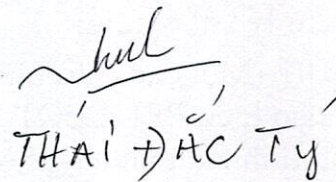 THÁI ĐẮC TÝ